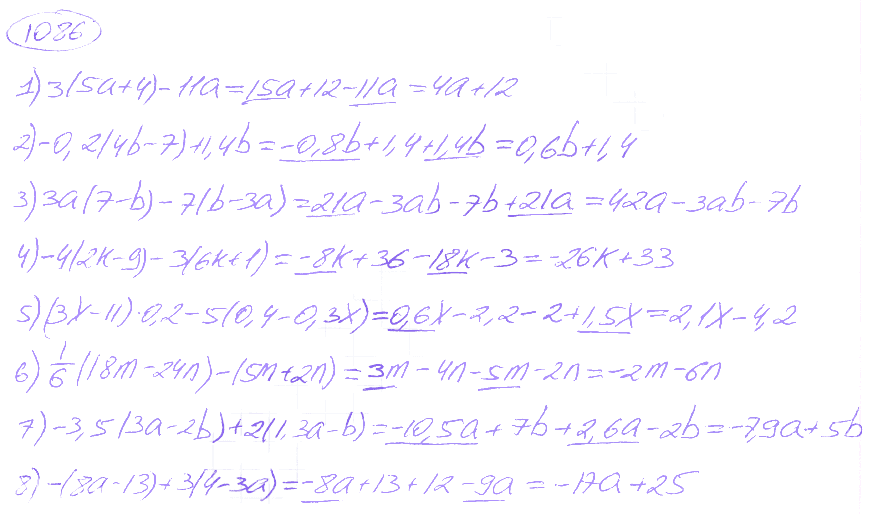 1086
1) 3(5a+4)-11a=15a+12-11a=4a+12
2) -0,2(4b-7)+1,4b=-0,8b+1,4+1,4b=0,6b+1,4
3) 3a(7-b)-7(b-3a)=21a-3ab-7b+21a=42a-3ab-7b
4) -4(2k-9)-3(6k+1)=-8k+36-18k-3=-26k+33
5) (3x-11)·0,2-5(0,4-0,3x)=0,6x-2,2-2+1,5x=2,1x-4,2
6) 1/6(18m-24n)-(5m+2n)=3m-4n-5m-2n=-2m-6n
7) -3,5(3a-2b)+2(1,3a-b)=-10,5a+7b+2,6a-2b=-7,9a+5b
8) -(8a-13)+3(4-3a)=-8a+13+12-9a=-17a+25